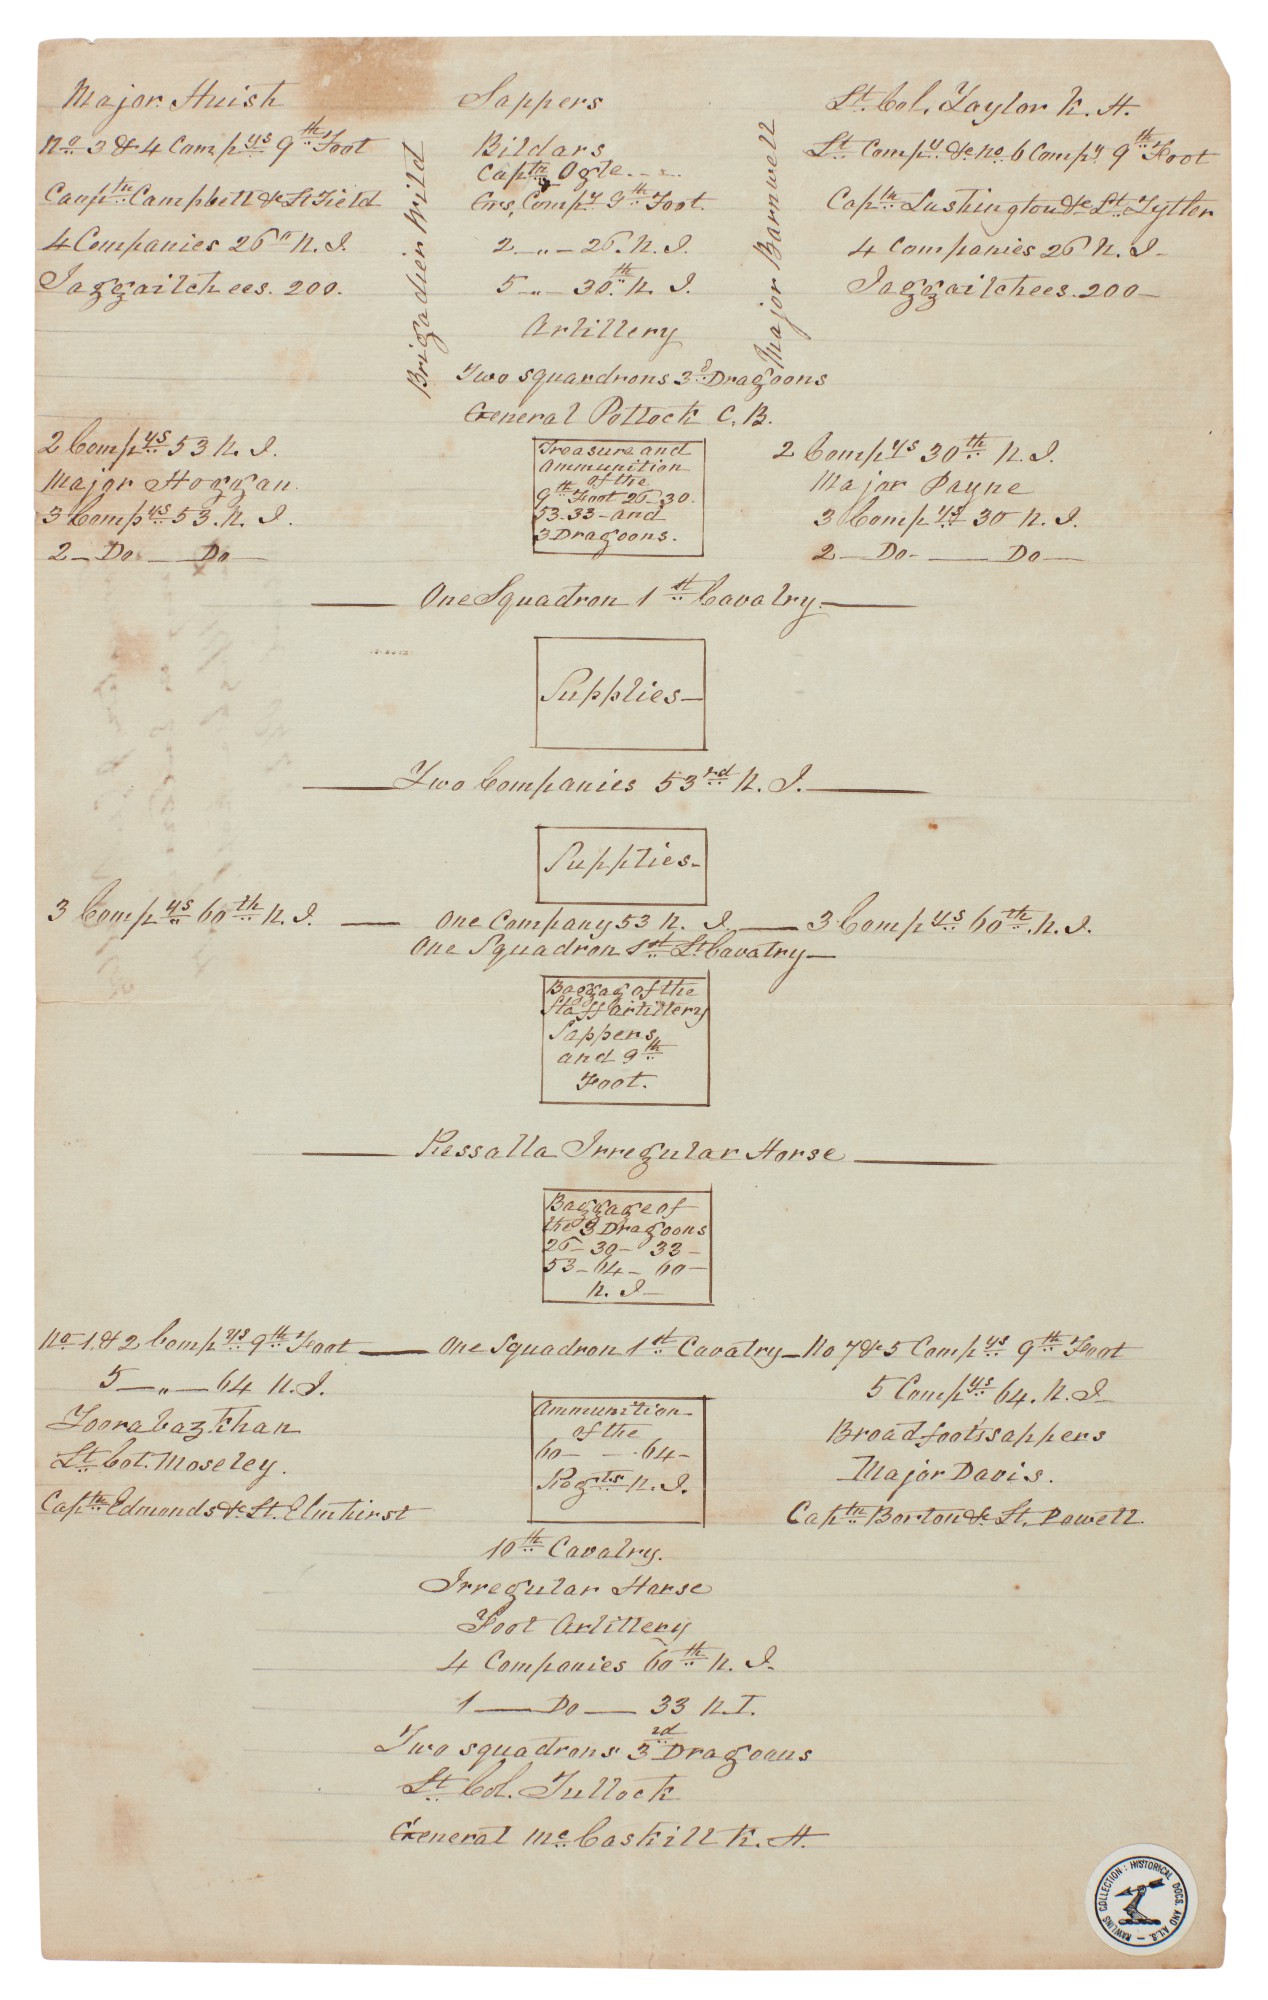 Major Huish
No 3 & 4 Compys 9th Foot
Caupn Campbell & Lt Field
4 Companies 26 N. I.
Jazzailchees. 200.
Brigadier Wild
Sappers
Bildars
Captn Ogle
Grs, Compy 9th Foot.
2 — „ — 26. N. I.
5 — „ — 30th N. I.
Artillery
Two squardrons 3d Dragoons
General Pollock C. B.
Major Barnwell
Lt. Col. Taylor K. H.
Lt Compy & No 6 Compy 9th Foot
Captn Lushington & Lt. Tytler
4 Companies 26 N. I.
Jazzailchees. 200
2 Compys 53 N. I.
Major Hoggan.
3 Compys 53. N. I.
2 — Do — Do —
Treasure and
Ammunition
of the
9th Foot 26 — 30.
53-33 - and
3 Dragoons.
2 Compys 30th N. I.
Major Payne
3 Compys 30 N. I.
2 — Do — Do —
One Squadron 1st Cavalry.
Supplies
Two Companies 53rd N. I.
Supplies
3 Compys 60th N. I. — One Company 53 N. I. — 3 Compys 60th. N. I.
One Squadron 1st Lt Cavalry
Baggag of the
Staff artillery
Sappers,
and 9th
Foot.
Ressalla Irregular Horse
Baggage of
the 3 Dragoons
26 - 30 - 33 -
53 - 64 - 60 -
N. I.
No 1. & 2 Compys 9th Foot — One Squadron 1st Cavalry — No 7 & 5 Compys 9th Foot
5 — „ — 64 N. I.
Toorabaz Khan
Lt Col. Moseley.
Captn Edmonds & Lt. Elmhirst
Ammunition
of the
60 — — 64 -
Regts N. I.
5 Compys 64. N. I.
Broadfoot's sappers
Major Davis.
Captn Borton & Lt. Powell.
10th Cavalry.
Irregular Horse
Foot Artillery
4 Companies 60th N. I.
1 — Do — 33 N. I.
Two squadrons 3rd Dragoons
Lt Col. Tullock
General Mc Caskill K. H.
RAWLINS COLLECTION: HISTORICAL DOCS. AND A.L.S.